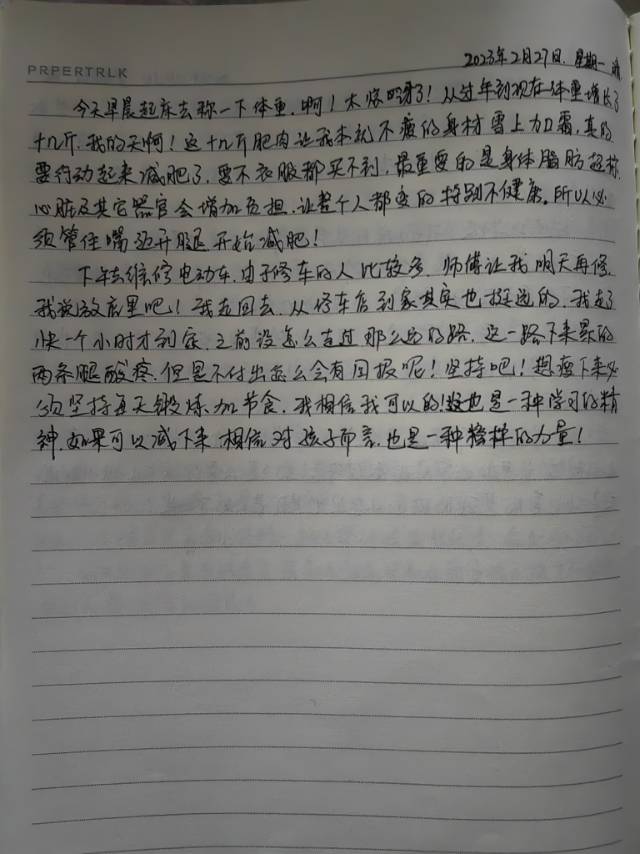 PRPERTRLK
2023年2月27日. 星期一 晴
今天早晨起床去称一下体重, 啊! 太恐怖了! 从过年到现在体重增长了
十几斤. 我的天啊! 这十几斤肥肉让我本就不瘦的身材雪上加霜, 真的
要行动起来减肥了, 要不衣服都买不到, 最重要的是身体脂肪超标,
心脏及其它器官会增加负担, 让整个人都变的特别不健康。所以必
须管住嘴迈开腿开始减肥!
下午去维修电动车, 由于修车的人比较多, 师傅让我明天再修,
我说放店里吧! 我走回去, 从修车店到家其实也挺远的, 我走了
快一个小时才到家, 之前没怎么走过那么远的路, 这一路下来累的
两条腿酸疼, 但是不付出怎么会有回报呢! 坚持吧! 想瘦下来必
须坚持每天锻炼加节食, 我相信我可以的! 这也是一种学习的精
神, 如果可以减下来相信对孩子而言, 也是一种榜样的力量!